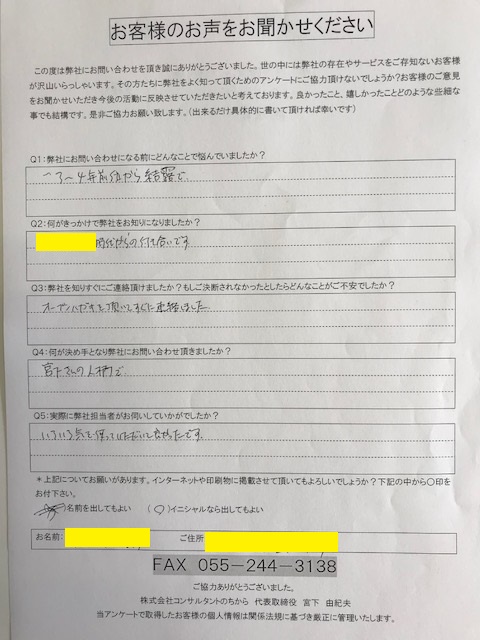 お客様のお声をお聞かせください
この度は弊社にお問い合わせを頂き誠にありがとうございました。世の中には弊社の存在やサービスをご存知ないお客様
が沢山いらっしゃいます。その方たちに弊社をよく知って頂くためのアンケートにご協力頂けないでしょうか?お客様のご意見
をお聞かせいただき今後の活動に反映させていただきたいと考えております。良かったこと、嬉しかったことどのような些細な
事でも結構です。是非ご協力お願い致します。(出来るだけ具体的に書いて頂ければ幸いです)
Q1:弊社にお問い合わせになる前にどんなことで悩んでいましたか?
3〜4年前位から結露で
Q2:何がきっかけで弊社をお知りになりましたか?
時代からの付き合いです
Q3:弊社を知りすぐにご連絡頂けましたか?もしご決断されなかったとしたらどんなことがご不安でしたか?
オープンハガキを頂いてすぐに連絡しました
Q4:何が決め手となり弊社にお問い合わせ頂きましたか?
宮下さんの人柄で
Q5:実際に弊社担当者がお伺いしていかがでしたか?
いろいろ気を使っていただいて良かったです。
*上記についてお願いがあります。インターネットや印刷物に掲載させて頂いてもよろしいでしょうか?下記の中から〇印を
お付下さい。
名前を出してもよい (〇)イニシャルなら出してもよい
お名前: ご住所:
FAX 055-244-3138
ご協力ありがとうございました。
株式会社コンサルタントのちから 代表取締役 宮下 由紀夫
当アンケートで取得したお客様の個人情報は関係法規に基づき厳正に管理いたします。